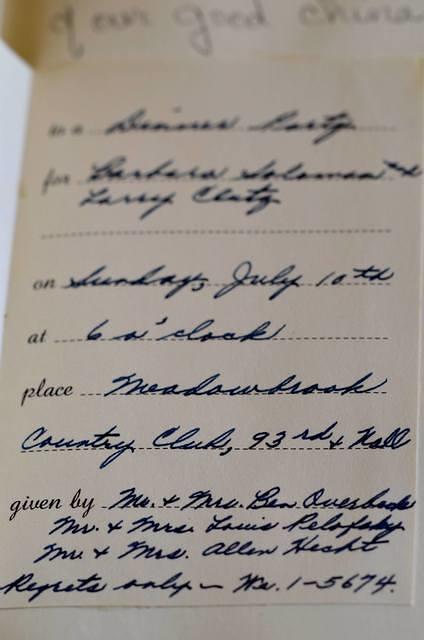 of our good china
to a Dinner Party
for Barbara Solomon and
Larry Clutz
on Sunday, July 10th
at 6 o'clock
place Meadowbrook
Country Club, 93rd & Nall
given by Mr. & Mrs. Ben Overbook
Mr. & Mrs. Louis Pelofsky
Mr. & Mrs. Allen Hecht
Regrets only — We. 1-5674.